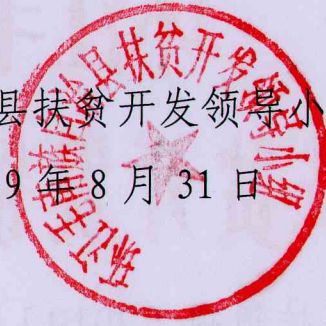 县扶贫开发领导小
9年8月31日
县扶贫开发领导小组